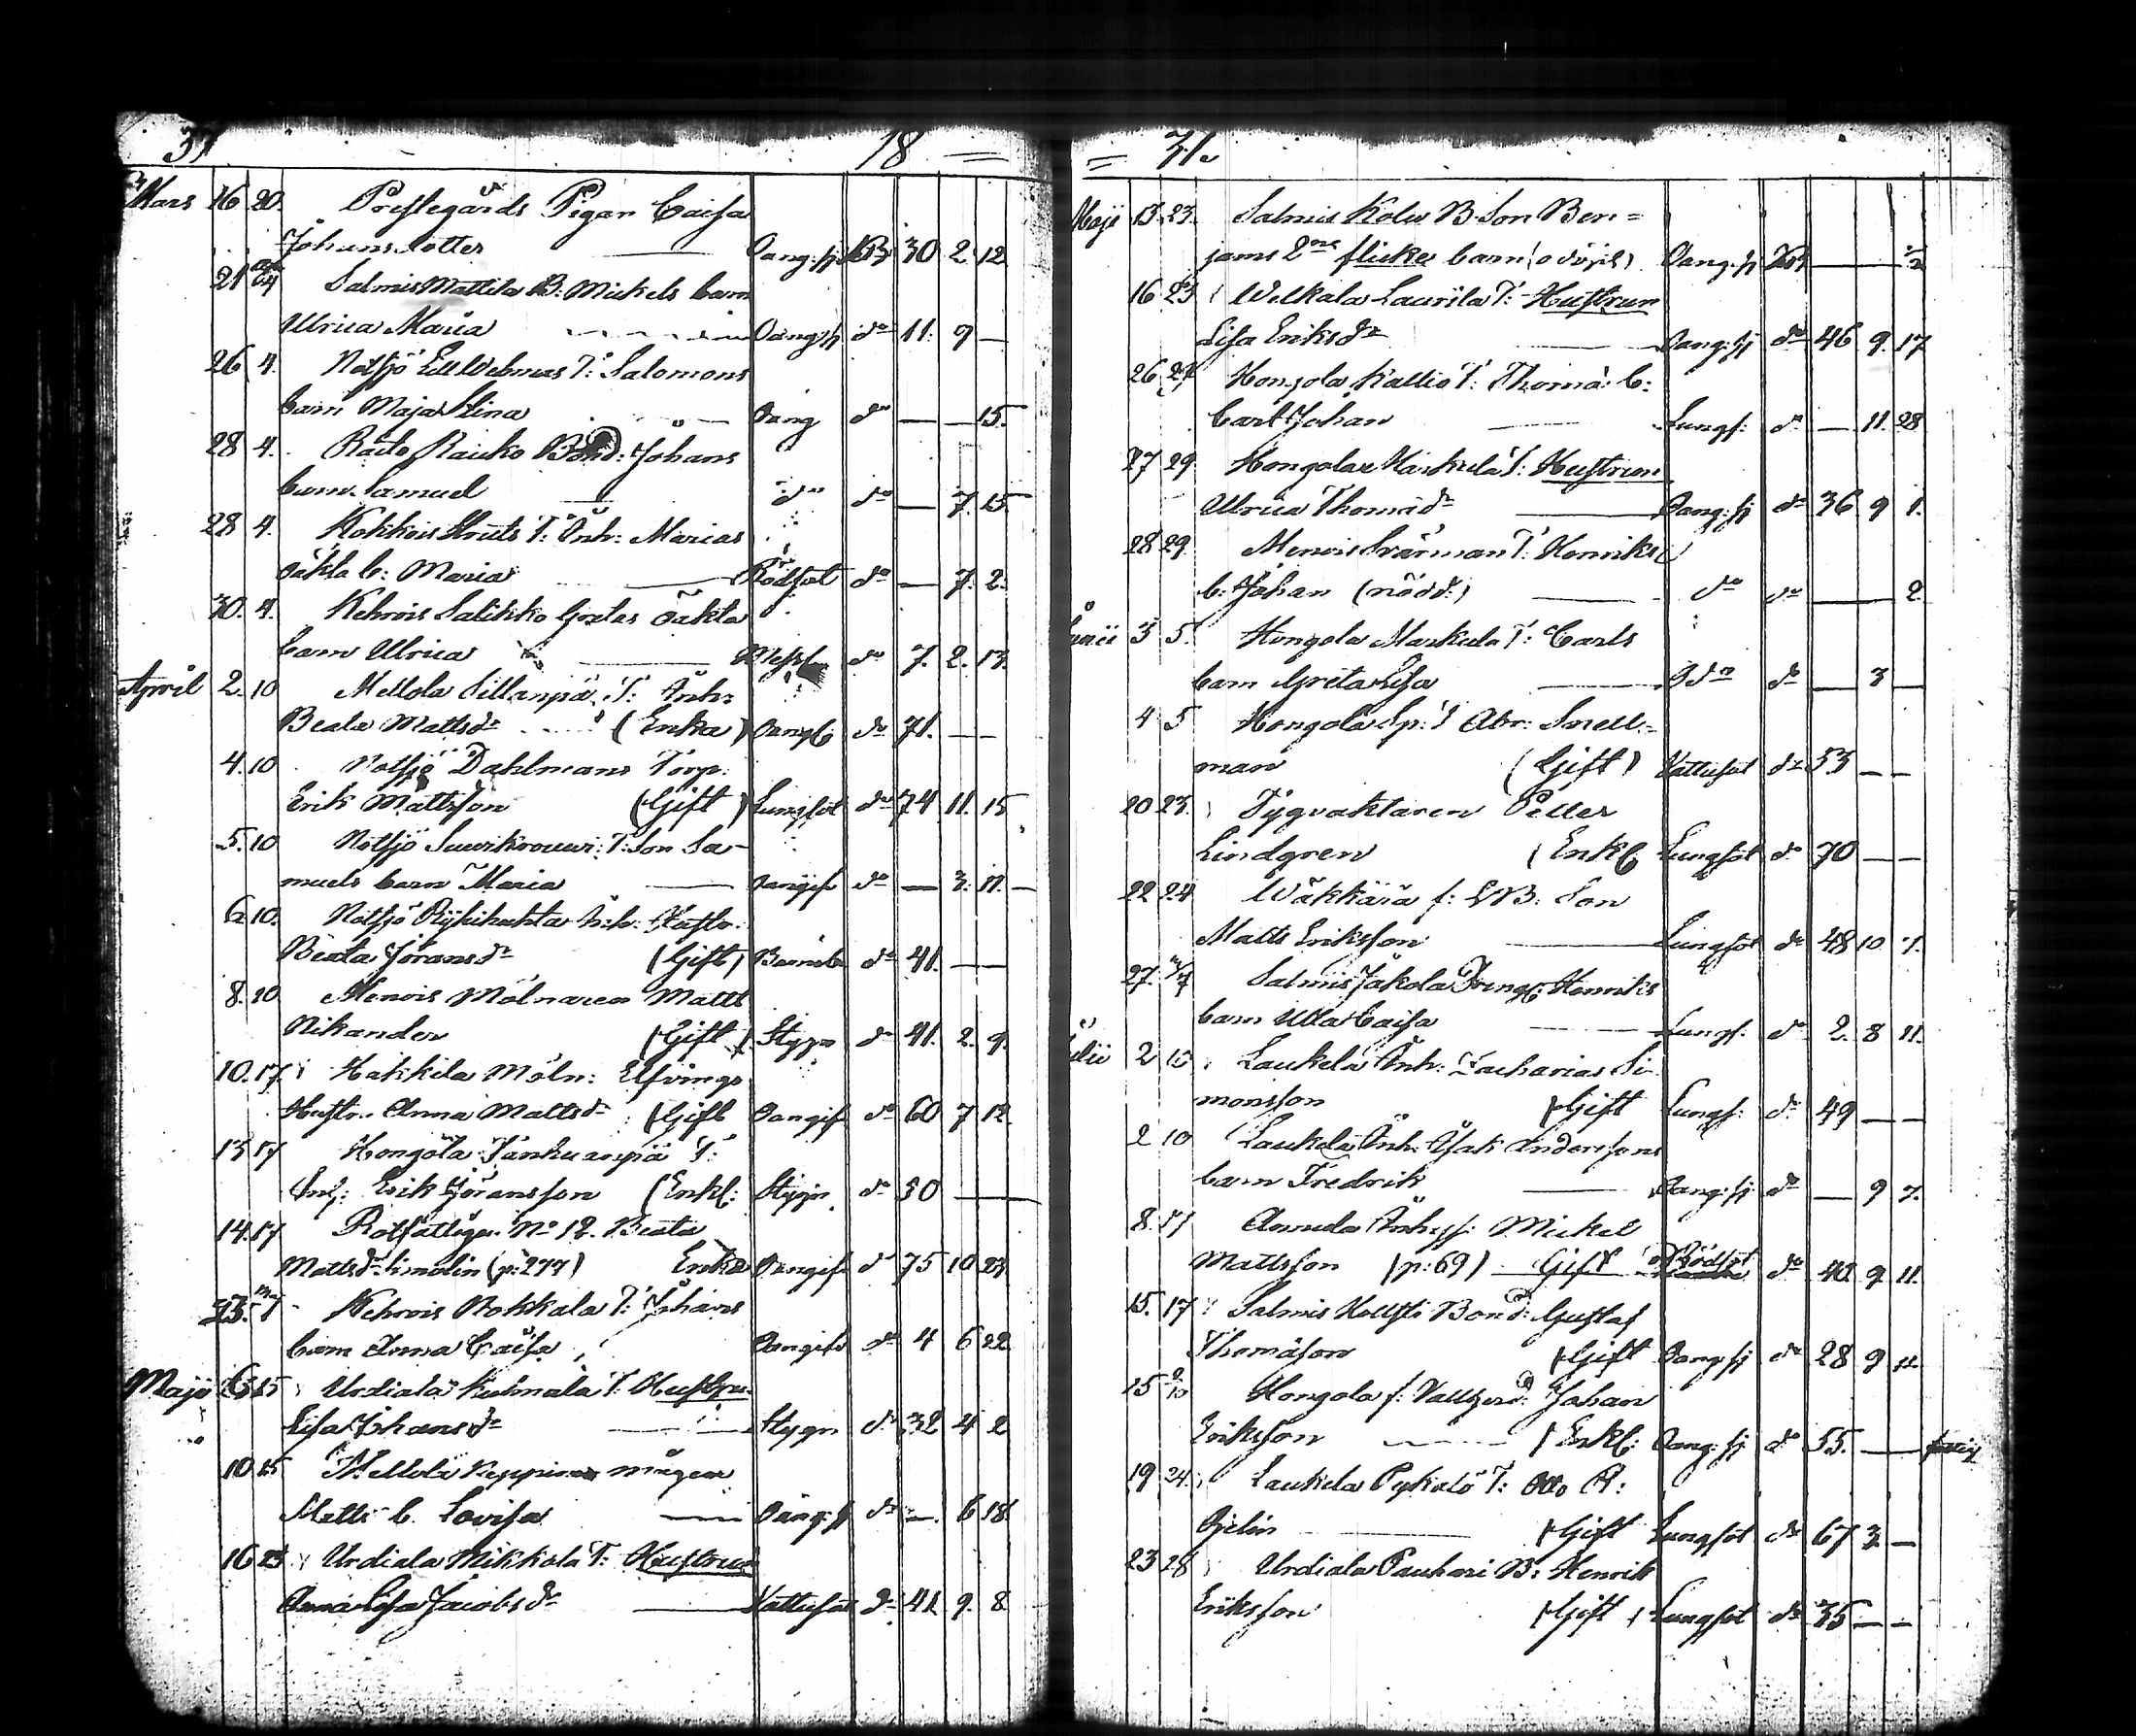 37 18 =
Mars 16 20. Prestegårds Pigan Caisa
Johansdotter — Oang:sj KB 30 2 12
21 Salmis Mattila B: Mickels barn
Ulrica Maria Oang:sj do 11. 9 —
26 4. Notsjö T: Salomons
barn Maja Stina — Oang do — — 15.
28 4. Rauto Raicko Bond: Johans
barn Samuel do do — 7. 15
28 4. Kokkois T: Inh: Marias
oäkta b: Maria — Rödsot do — 7. 2.
30. 4. Kehrois Salikko Gretas oäkta
barn Ulrica — do 7. 2. 13.
April 2. 10 Mellola Sillanpä T: Inh:
Beata Mattsdr (Enka) do 71. — —
4. 10 Notsjö Dahlmans Torp:
Erik Mattsson (Gift) Lungsot do 74 11. 15
5. 10 Notsjö T: Son Sa-
muels barn Maria — Oangifs do — 3. 11. —
6. 10. Notsjö Inh: Hustr:
Beata Jöransdr (Gift) do 41. — —
8. 10 Menois Mölnaren Matts
Nikander (Gift) Stygn do 41. 2. 9.
10. 17 Hakkila Möln: Elfvings
Hustr. Anna Mattsdr (Gift Oangifs do 60 7 12.
13 17 Hongola Tankuanpä T:
Inh: Erik Göransson (Enkl: Stygn do 50 —
14. 17 Rotfattige No 12. Beata
Mattsdr Limolin (p: 277) Enka Oangifs do 75 10 23
23. 1 Kehrois Rokkala T: Johans
barn Anna Caisa Oangifs do 4 6 22
Maji 6 15 Urdiala Kulmala T: Hustru
Lisa Johansdr — Stygn do 32 4 2
10 15 Mellola mågen
Matts b. Lovisa — Oang:sj do — 6 18.
16 23 Urdiala Mikkola T: Hustrun
Anna Lisa Jacobsdr — Vattusot do 41. 9. 8.
= 31.
Maji 13. 23. Salmis B: Son Ben=
jams 2ne flicke barn Oang:sj —
16 23 Welkala Laurila T: Hustrun
Lisa Eriksdr — Oang:sj do 46 9. 17
26 29 Hongola Kallio T: Thomä b:
Carl Johan — Lungs: do — 11. 28
27 29 Hongola Markula T: Hustrun
Ulrica Thomädr — Oang:sj do 36 9 1.
28 29. Menois Svärman T: Henriks
b: Johan (nödd:) — do do — 2.
Junii 3 5. Hongola Markula T: Carls
barn Greta Lisa — do do — 3 —
4 5 Hongola Sp: T Abr: Snell-
man (Gift) Vattusot do 53 — —
20 23. Tygvaktaren Petter
Lindgren (Enkl Lungsot do 70 — —
22 24 Wäkkärä f: B: Son
Matts Eriksson — Lungsot do 48 10 7.
27. Salmis Jakola Dreng: Henriks
barn Ulla Caisa — Lungs: do 2. 8 11.
Julii 2 10 Laukela Inh: Zacharias Si-
monsson (Gift Lungs: do 49 — —
2 10 Laukela Inh: Isak Anderssons
barn Fredrik — Oang:sj do — 9 7.
8. 17 Annula Inhys: Mickel
Mattsson (p: 69) — Gift Rödsot do 40. 9. 11.
15. 17 Salmis Bond: Gustaf
Thomäson (Gift Oang:sj do 28 9
15 Hongola f: Johan
Eriksson — (Enkl: Oang:sj do 55. — fattig
19 24. Laukela T: Otto
— (Gift Lungsot do 67 3. —
23 28 Urdiala Pauhari B: Henrik
Eriksson (Gift) Lungsot do 35 — —